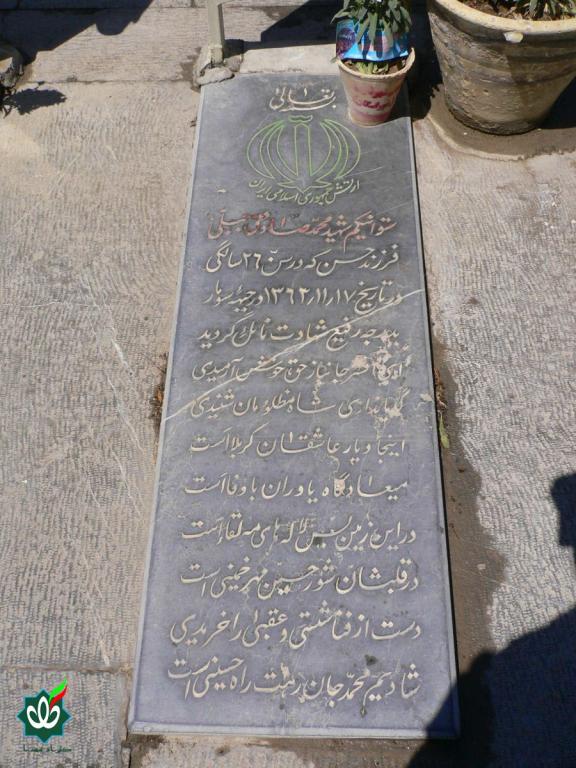 بتعالی
ارتش جمهوری اسلامی ایران
ستوانیکم شهید محمد صادق
فرزند حسن که در سن ۲۶ سالگی
در تاریخ ۱۳۶۲٫۱۱٫۱۷ در جبهه
بدرجه رفیع شهادت نائل گردید
جانباز حق خوش آرمیدی
شاه مظلومان شنیدی
اینجا دیار عاشقان کربلا است
میعادگاه یاوران با وفا است
در این زمین بس لاله های مه لقا است
در قلبشان شور حسین مهر خمینی است
دست از فنا شستی و عقبی را خریدی
شادیم محمد جان رهت راه حسینی است